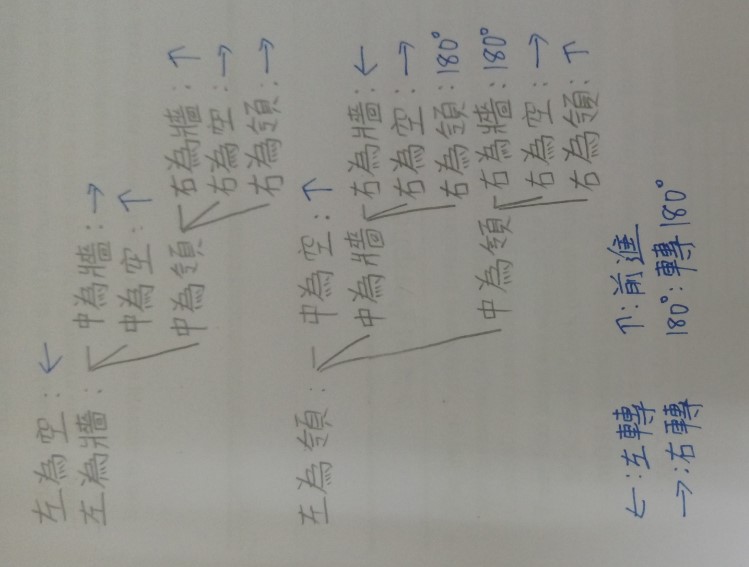 左為空:←
左為牆:中為牆:→
中為空:↑
中為領 右為牆:↑
右為空:→
右為領:→
左為領:中為空:↑
中為牆 右為牆:←
右為空:→
右為領:180°
中為領 右為牆:180°
右為空:→
右為領:↑
←:左轉 ↑:前進
→:右轉 180°:轉180°